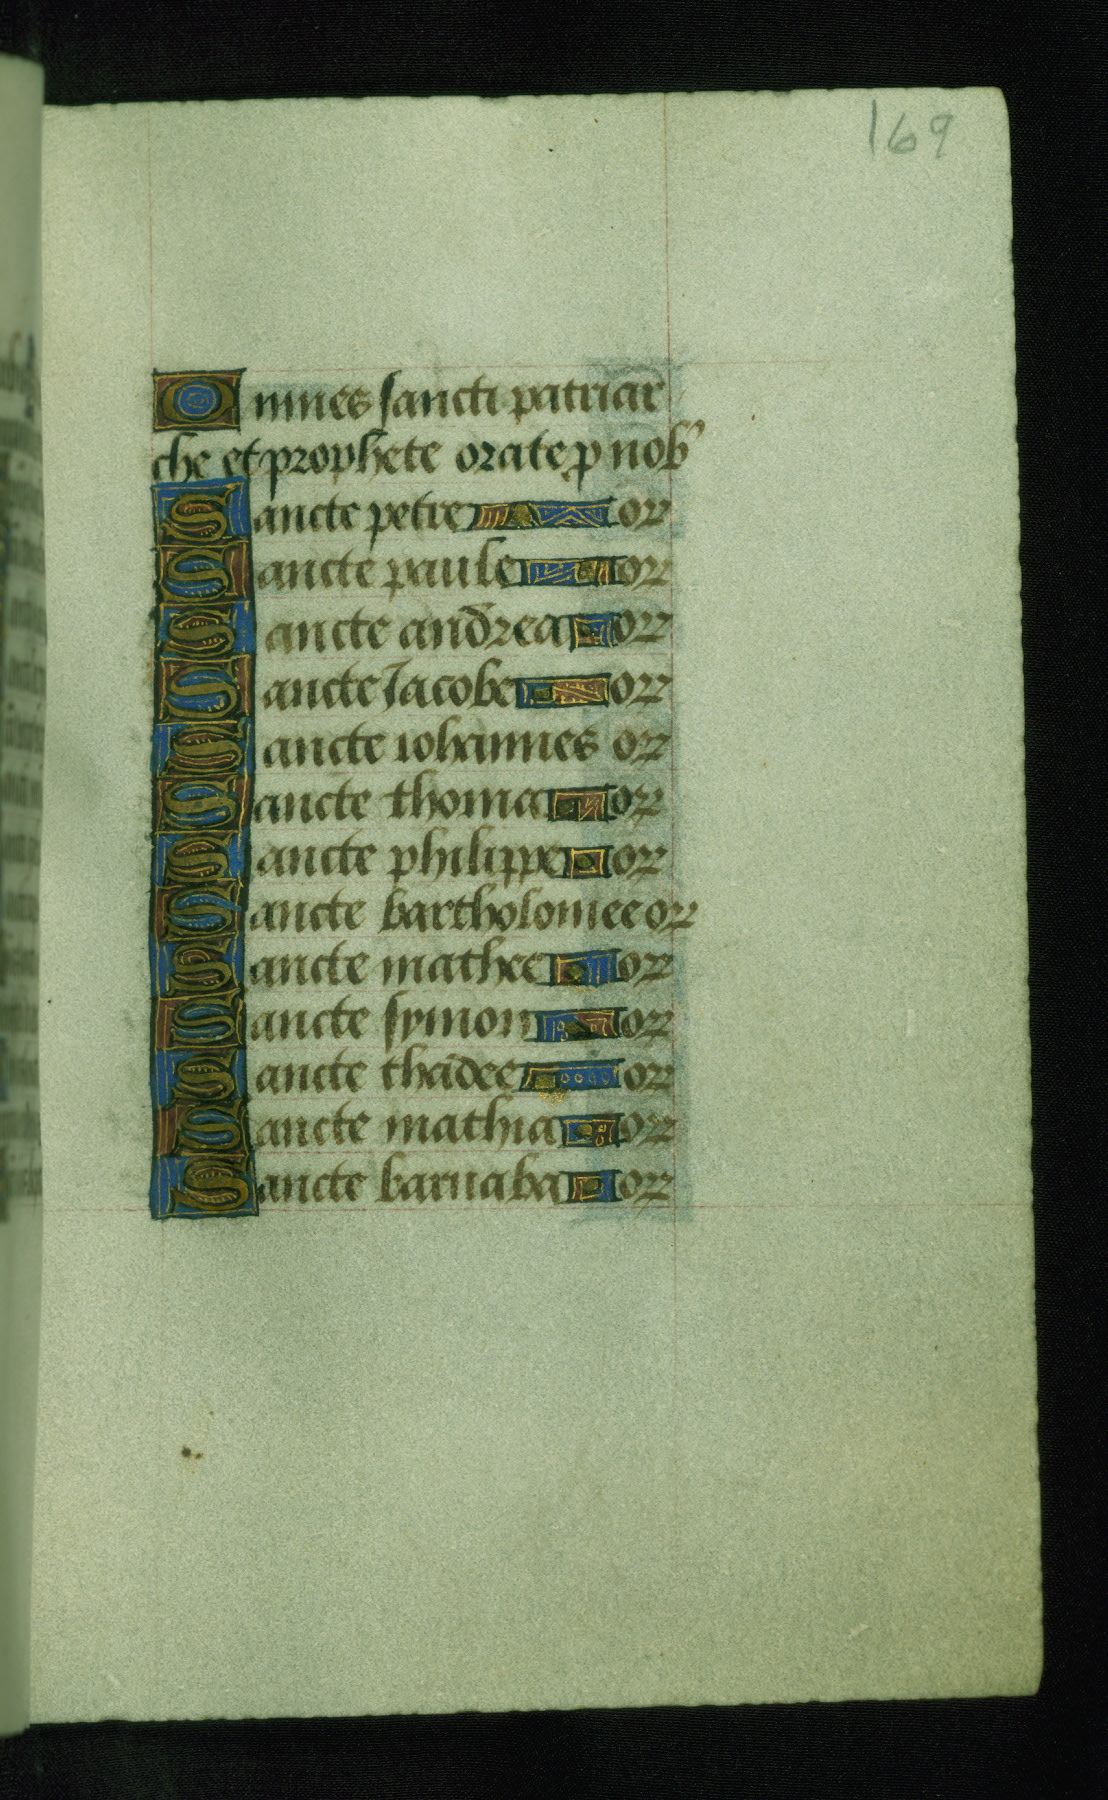 169
Omnes sancti patriar
che et prophete orate p nob
Sancte petre or
Sancte paule or
Sancte andrea or
Sancte Jacobe or
Sancte iohannes or
Sancte thoma or
Sancte philippe or
Sancte bartholomee or
Sancte mathee or
Sancte symon or
Sancte thadee or
Sancte mathia or
Sancte barnaba or